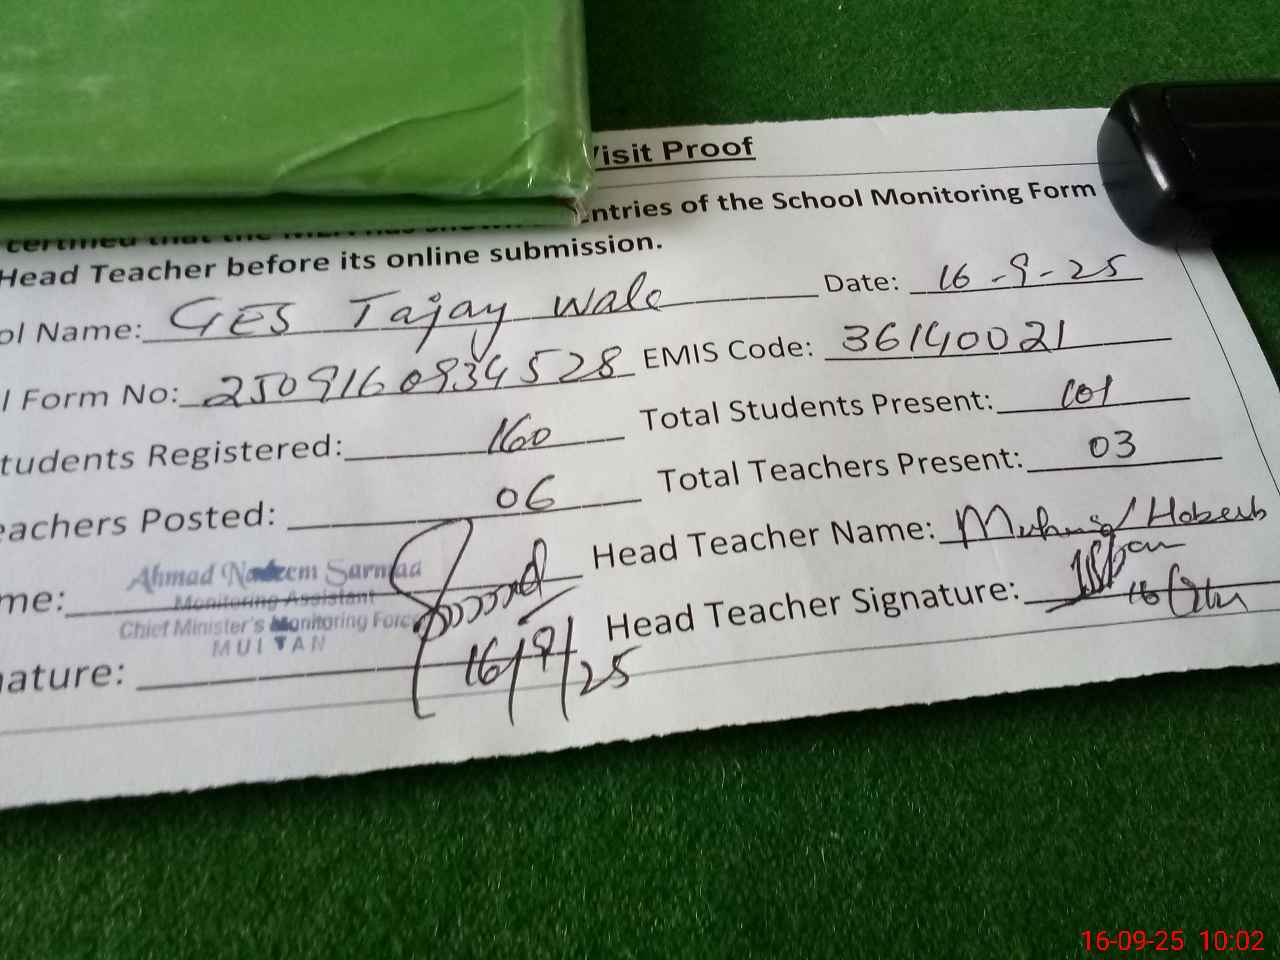 Visit Proof
certified that the MEA has shown entries of the School Monitoring Form
Head Teacher before its online submission.
ol Name: GES Tajay wale Date: 16-9-25
l Form No: 2509160934528 EMIS Code: 36140021
tudents Registered: 160 Total Students Present: 101
eachers Posted: 06 Total Teachers Present: 03
me: Ahmad Nadeem Sarmad Head Teacher Name:
Monitoring Assistant
Chief Minister's Monitoring Force
MULTAN
Head Teacher Signature:
nature: 16/9/25
16-09-25 10:02